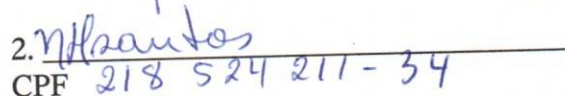 2. NHsantos
CPF 218 524 211-34